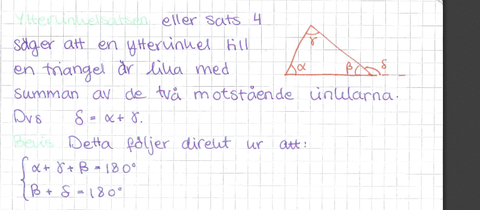 Yttervinkelsatsen eller sats 4
säger att en yttervinkel till
en triangel är lika med
summan av de två motstående vinklarna.
Dvs δ = α + γ.
Bevis Detta följer direkt ur att:
α + γ + β = 180°
β + δ = 180°
γ
α
β
δ